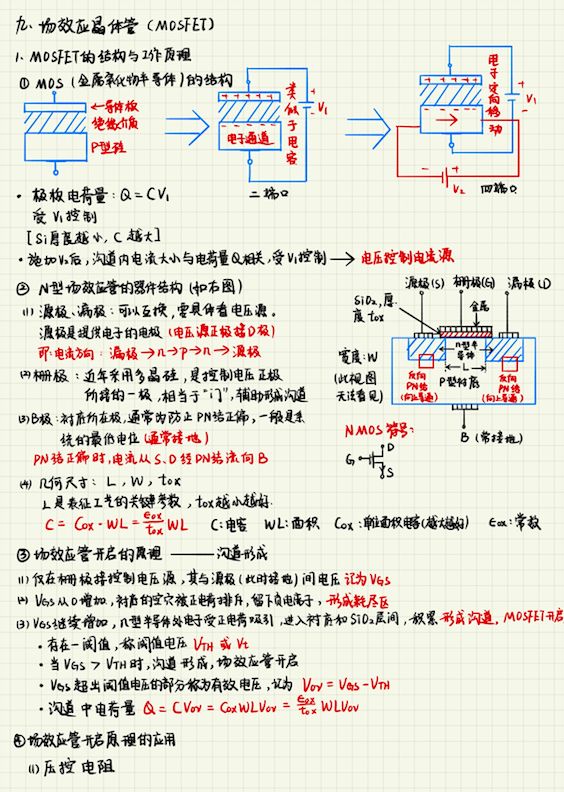 九. 场效应晶体管 (MOSFET)
1. MOSFET的结构与工作原理
① MOS (金属氧化物半导体) 的结构
←导体板
绝缘介质
P型硅
+ + + + +
- - - - -
电子通道
类似于电容
+
-
V1
二端口
电子定向移动
+
-
V1
- +
V2
四端口
• 极板电荷量: Q = CV1
受 V1控制
[Si厚度越小, C 越大]
• 施加V2后, 沟道内电流大小与电荷量Q相关, 受V1控制 → 电压控制电流源
② N型场效应管的器件结构 (如右图)
(1) 源极、漏极: 可以互换, 需具体看电压源。
源极是提供电子的电极 (电压源正极接D极)
即: 电流方向: 漏极→n→P→n→源极
(2) 栅极: 近年采用多晶硅, 是控制电压正极
所接的一极, 相当于"门", 辅助形成沟道
(3) B极: 衬底所在极, 通常为防止PN结正偏, 一般是系
统的最低电位 (通常接地)
PN结正偏时, 电流从S、D经PN结流向B
源极(S) 栅极(G) 漏极(D)
SiO2, 厚度tox
金属
n型半导体
L
宽度: W
(此视图无法看见)
反向PN结
(向上导通)
P型衬底
反向PN结
(向上导通)
B (常接地)
NMOS符号:
G
D
S
(4) 几何尺寸: L, W, tox
L是表征工艺的关键参数, tox越小越好.
C = Cox · WL = εox/tox WL C: 电容 WL: 面积 Cox: 单位面积电容(越大越好) εox: 常数
③ 场效应管开启的原理 —— 沟道形成
(1) 仅在栅极接控制电压源, 其与源极 (此时接地) 间电压 记为VGS
(2) VGS从0增加, 衬底的空穴被正电荷排斥, 留下负电离子, 形成耗尽区
(3) VGS继续增加, n型半导体处电子受正电荷吸引, 进入衬底和SiO2层间, 积累形成沟道, MOSFET开启
• 存在一阈值, 称阈值电压 VTH 或 Vt
• 当 VGS > VTH 时, 沟道形成, 场效应管开启
• VGS 超出阈值电压的部分称为有效电压, 记为 VOV = VGS - VTH
• 沟道中电荷量 Q = CVOV = COXWLVOV = εox/tox WLVOV
④ 场效应管开启原理的应用
(1) 压控电阻